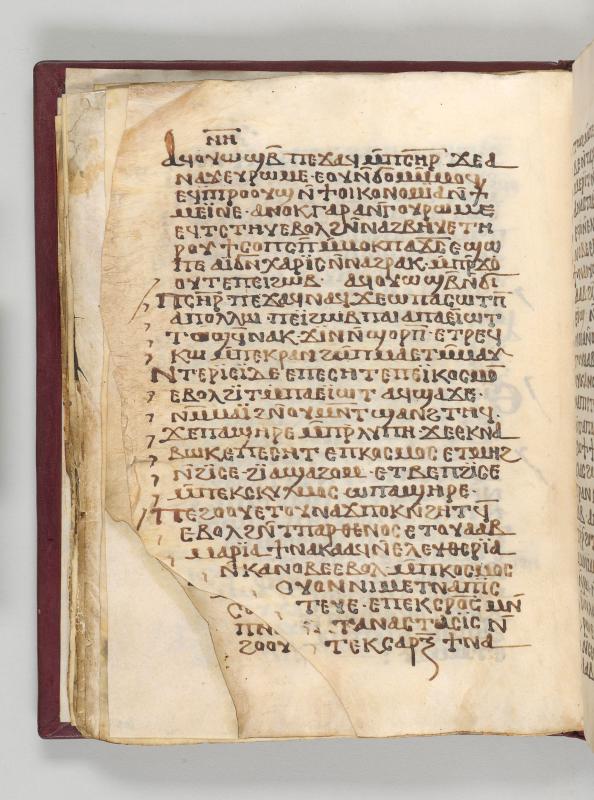 ⲛⲏ
ⲁϥⲟⲩⲱϣⲃ̄ ⲡⲉϫⲁϥ ⲙ̄ⲡⲥⲏⲣ̄ ϫⲉⲁ
ⲛⲁϩⲉⲩⲣⲱⲙⲉ · ⲉⲟⲩⲛϭⲟⲙ ⲙⲙⲟϥ
ⲉϥⲓⲡⲣⲟⲟⲩϣ ⲛ̄ϯⲟⲓⲕⲟⲛⲟⲙⲓⲁ ⲛ̄ϯ
ⲙⲉⲓⲛⲉ · ⲁⲛⲟⲕ ⲅⲁⲣ ⲁⲛⲅ̄ⲟⲩⲣⲱⲙⲉ
ⲉϥⲥⲧⲏⲩ ⲉⲃⲟⲗ ϩⲛ̄ⲛⲁϩⲃⲏⲩⲉ ⲧⲏ
ⲣⲟⲩ ϯⲥⲟⲡⲥⲡ̄ ⲙⲙⲟⲕ ⲡⲁϫⲥ ⲉϣⲱ
ⲡⲉ ⲁⲓϭⲛ̄ ⲭⲁⲣⲓⲥ ⲛ̄ⲛⲁϩⲣⲁⲕ · ⲙⲡⲣ̄ϫⲟ
ⲟⲩⲧ ⲉⲡⲉⲓϩⲱⲃ · ⲁϥⲟⲩⲱϣⲃ̄ ⲛ̄ϭⲓ
ⲡⲥⲏⲣ̄ ⲡⲉϫⲁϥ ⲛⲁϥ ϫⲉ ⲱ ⲡⲁⲥⲱⲧⲡ̄
ⲁⲡⲟⲗⲗⲱ · ⲡⲉⲓϩⲱⲃ ⲡⲁⲓ ⲁⲡⲁⲉⲓⲱⲧ
ⲧⲟϣϥ̄ ⲛⲁⲕ · ϫⲓⲛ ⲛ̄ϣⲟⲣⲡ̄ · ⲉⲧⲣⲉϥ
ⲕⲱ ⲙ̄ⲡⲉⲕⲣⲁⲛ ϩⲙ̄ⲡⲙⲁ ⲉⲧⲙⲙⲁⲩ
ⲛ̄ⲧⲉⲣⲓⲉⲓ ⲇⲉ ⲉⲡⲉⲥⲏⲧ ⲉⲡⲉⲓⲕⲟⲥⲙⲟ
ⲉⲃⲟⲗ ϩⲓⲧⲙ̄ⲡⲁⲉⲓⲱⲧ ⲁϥϣⲁϫⲉ ·
ⲛⲙ̄ⲙⲁⲓ ϩⲛ̄ⲟⲩⲙⲛⲧϣⲁⲛϩⲧⲏϥ ·
ϫⲉ ⲡⲁϣⲏⲣⲉ ⲙ̄ⲡⲣ̄ⲗⲩⲡⲏ · ϫⲉ ⲉⲕⲛⲁ
ⲃⲱⲕ ⲉⲡⲉⲥⲏⲧ ⲉⲡⲕⲟⲥⲙⲟⲥ ⲉⲧⲙⲏϩ
ⲛ̄ϩⲓⲥⲉ · ϩⲓ ⲁϣⲁϩⲟⲙ · ⲉⲧⲃⲉ ⲡϩⲓⲥⲉ
ⲙ̄ⲡⲉⲕⲥⲕⲩⲗⲙⲟⲥ ⲱ ⲡⲁϣⲏⲣⲉ ·
ⲡⲉϩⲟⲟⲩ ⲉⲧⲟⲩⲛⲁϫⲡⲟⲕ ⲛϩⲏⲧϥ
ⲉⲃⲟⲗ ϩⲛ̄ⲧⲡⲁⲣⲑⲉⲛⲟⲥ ⲉⲧⲟⲩⲁⲁⲃ
ⲙⲁⲣⲓⲁ ϯⲛⲁⲕⲁⲁϥ ⲛ̄ⲉⲗⲉⲩⲑⲉⲣⲓⲁ
ⲛⲕⲁⲛⲟⲃⲉ ⲉⲃⲟⲗ ⲙ̄ⲡⲕⲟⲥⲙⲟⲥ
ⲟⲩⲟⲛ ⲛⲓⲙ ⲉⲧⲛⲁⲡⲓⲥ
ⲧⲉⲩⲉ · ⲉⲡⲉⲕⲥⲣⲟⲥ̄ ⲙⲛ̄
ⲧⲁⲛⲁⲥⲧⲁⲥⲓⲥ ⲛ̄
ϩⲟⲟⲩ ⲧⲉⲕⲥⲁⲣⲝ ϯⲛⲁ